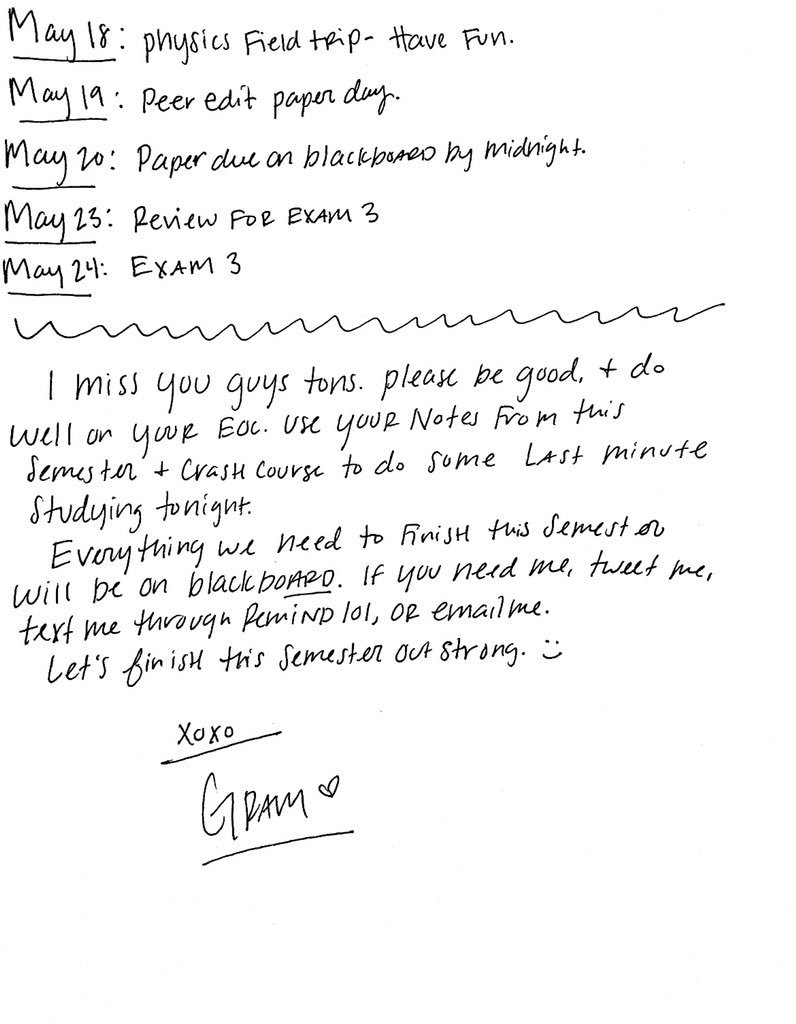 May 18: physics Field trip- Have Fun.
May 19: Peer edit paper day.
May 20: Paper due on blackboARD by midnight.
May 23: Review FOR EXAM 3
May 24: EXAM 3
I miss you guys tons. please be good, + do
well on your EOC. Use your Notes From this
Semester + Crash Course to do some Last minute
Studying tonight.
Everything we need to Finish this Semester
will be on blackboARD. If you need me, tweet me,
text me through Remind 101, OR email me.
Let's finish this Semester out strong. :)
XOXO
GRAM ♡